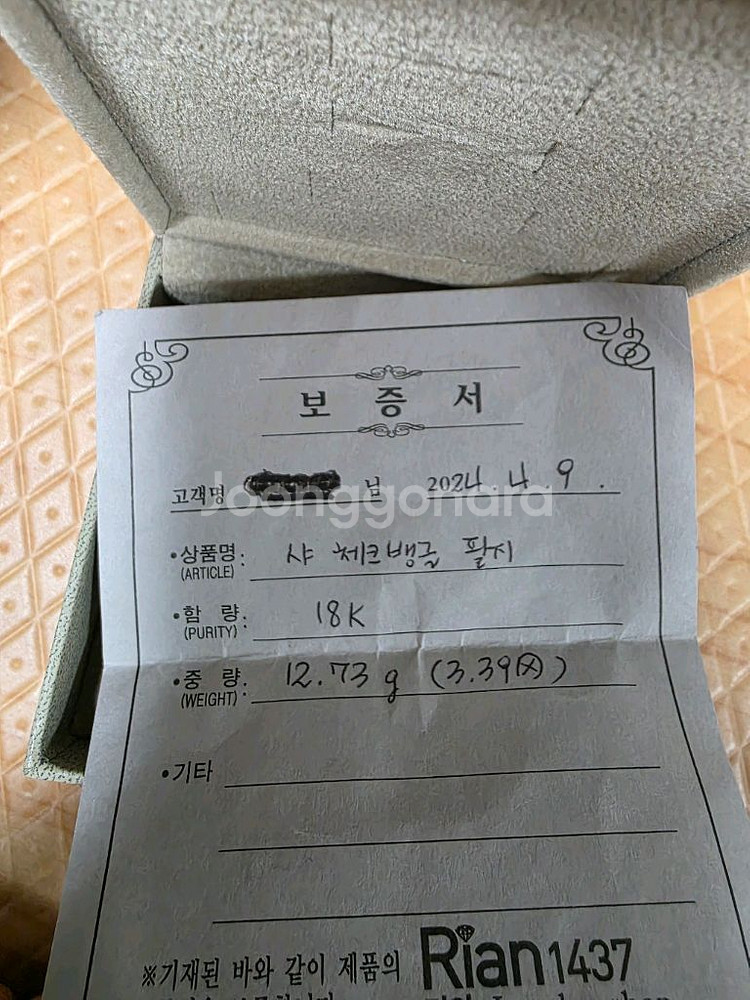 보 증 서
고객명 님 2024. 4. 9.
Joonggonara
•상품명: 샤 체크뱅글 팔지
(ARTICLE)
•함 량: 18K
(PURITY)
•중 량: 12.73g (3.39돈)
(WEIGHT)
•기타
※기재된 바와 같이 제품의 Rian1437